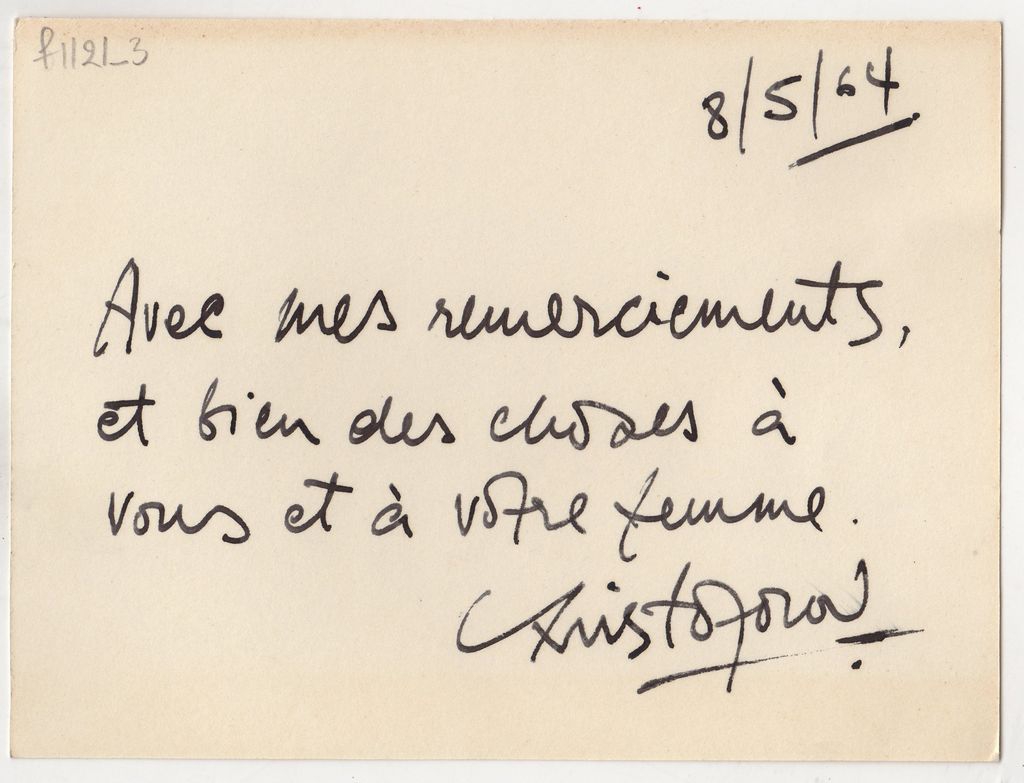 f1121_3
8/5/64
Avec mes remerciements,
et bien des choses à
vous et à votre femme.
Christoforou